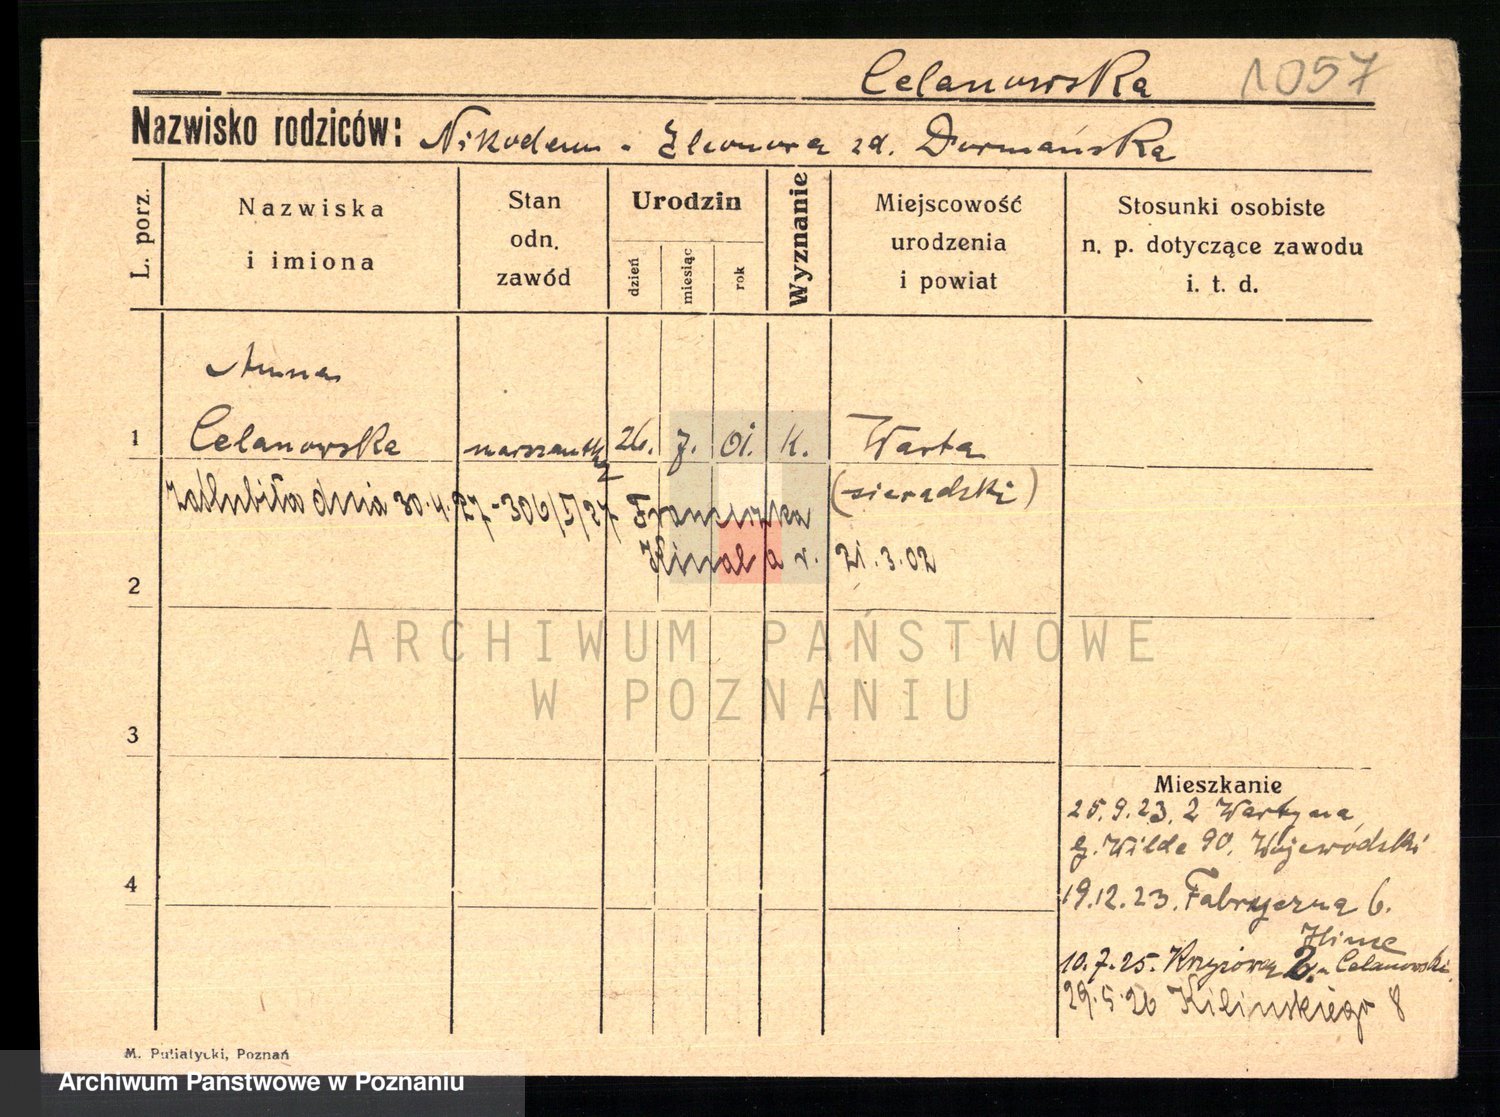 Celanowska 1057
Nazwisko rodziców: Nikodem - Eleonora zd. Dormańska
L. porz.
Nazwiska
i imiona
Stan
odn.
zawód
Urodzin
dzień
miesiąc
rok
Wyznanie
Miejscowość
urodzenia
i powiat
Stosunki osobiste
n. p. dotyczące zawodu
i. t. d.
Anna
1 Celanowska 26. 7. 01. k. Warta
(sieradzki)
zaślubiła dnia 30.4.27 - 306/I/27 Franciszka
r. 21.3.02
2
ARCHIWUM PAŃSTWOWE
W POZNANIU
3
Mieszkanie
25.9.23. z Wartyna
g. Wilda 90. Wojewódzki
4
19.12.23. Fabryczna 6.
10.7.25. Krzyżowa 2. Celanowski
29.5.26 Kilińskiego 8
M. Putiatycki, Poznań
Archiwum Państwowe w Poznaniu